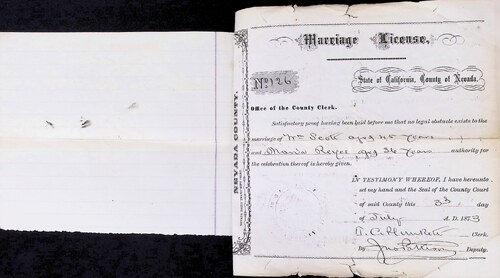 Marriage License.
No 126
State of California, County of Nevada.
NEVADA COUNTY.
Office of the County Clerk.
Satisfactory proof having been laid before me that no legal obstacle exists to the
marriage of Wm Scott aged 45 years
and Maria Reyes aged 36 years authority for
the celebration thereof is hereby given.
IN TESTIMONY WHEREOF, I have hereunto
set my hand and the Seal of the County Court
of said County this 3d day
of July A. D. 1873
T. C. Plunkett Clerk.
By Jno Pattison Deputy.